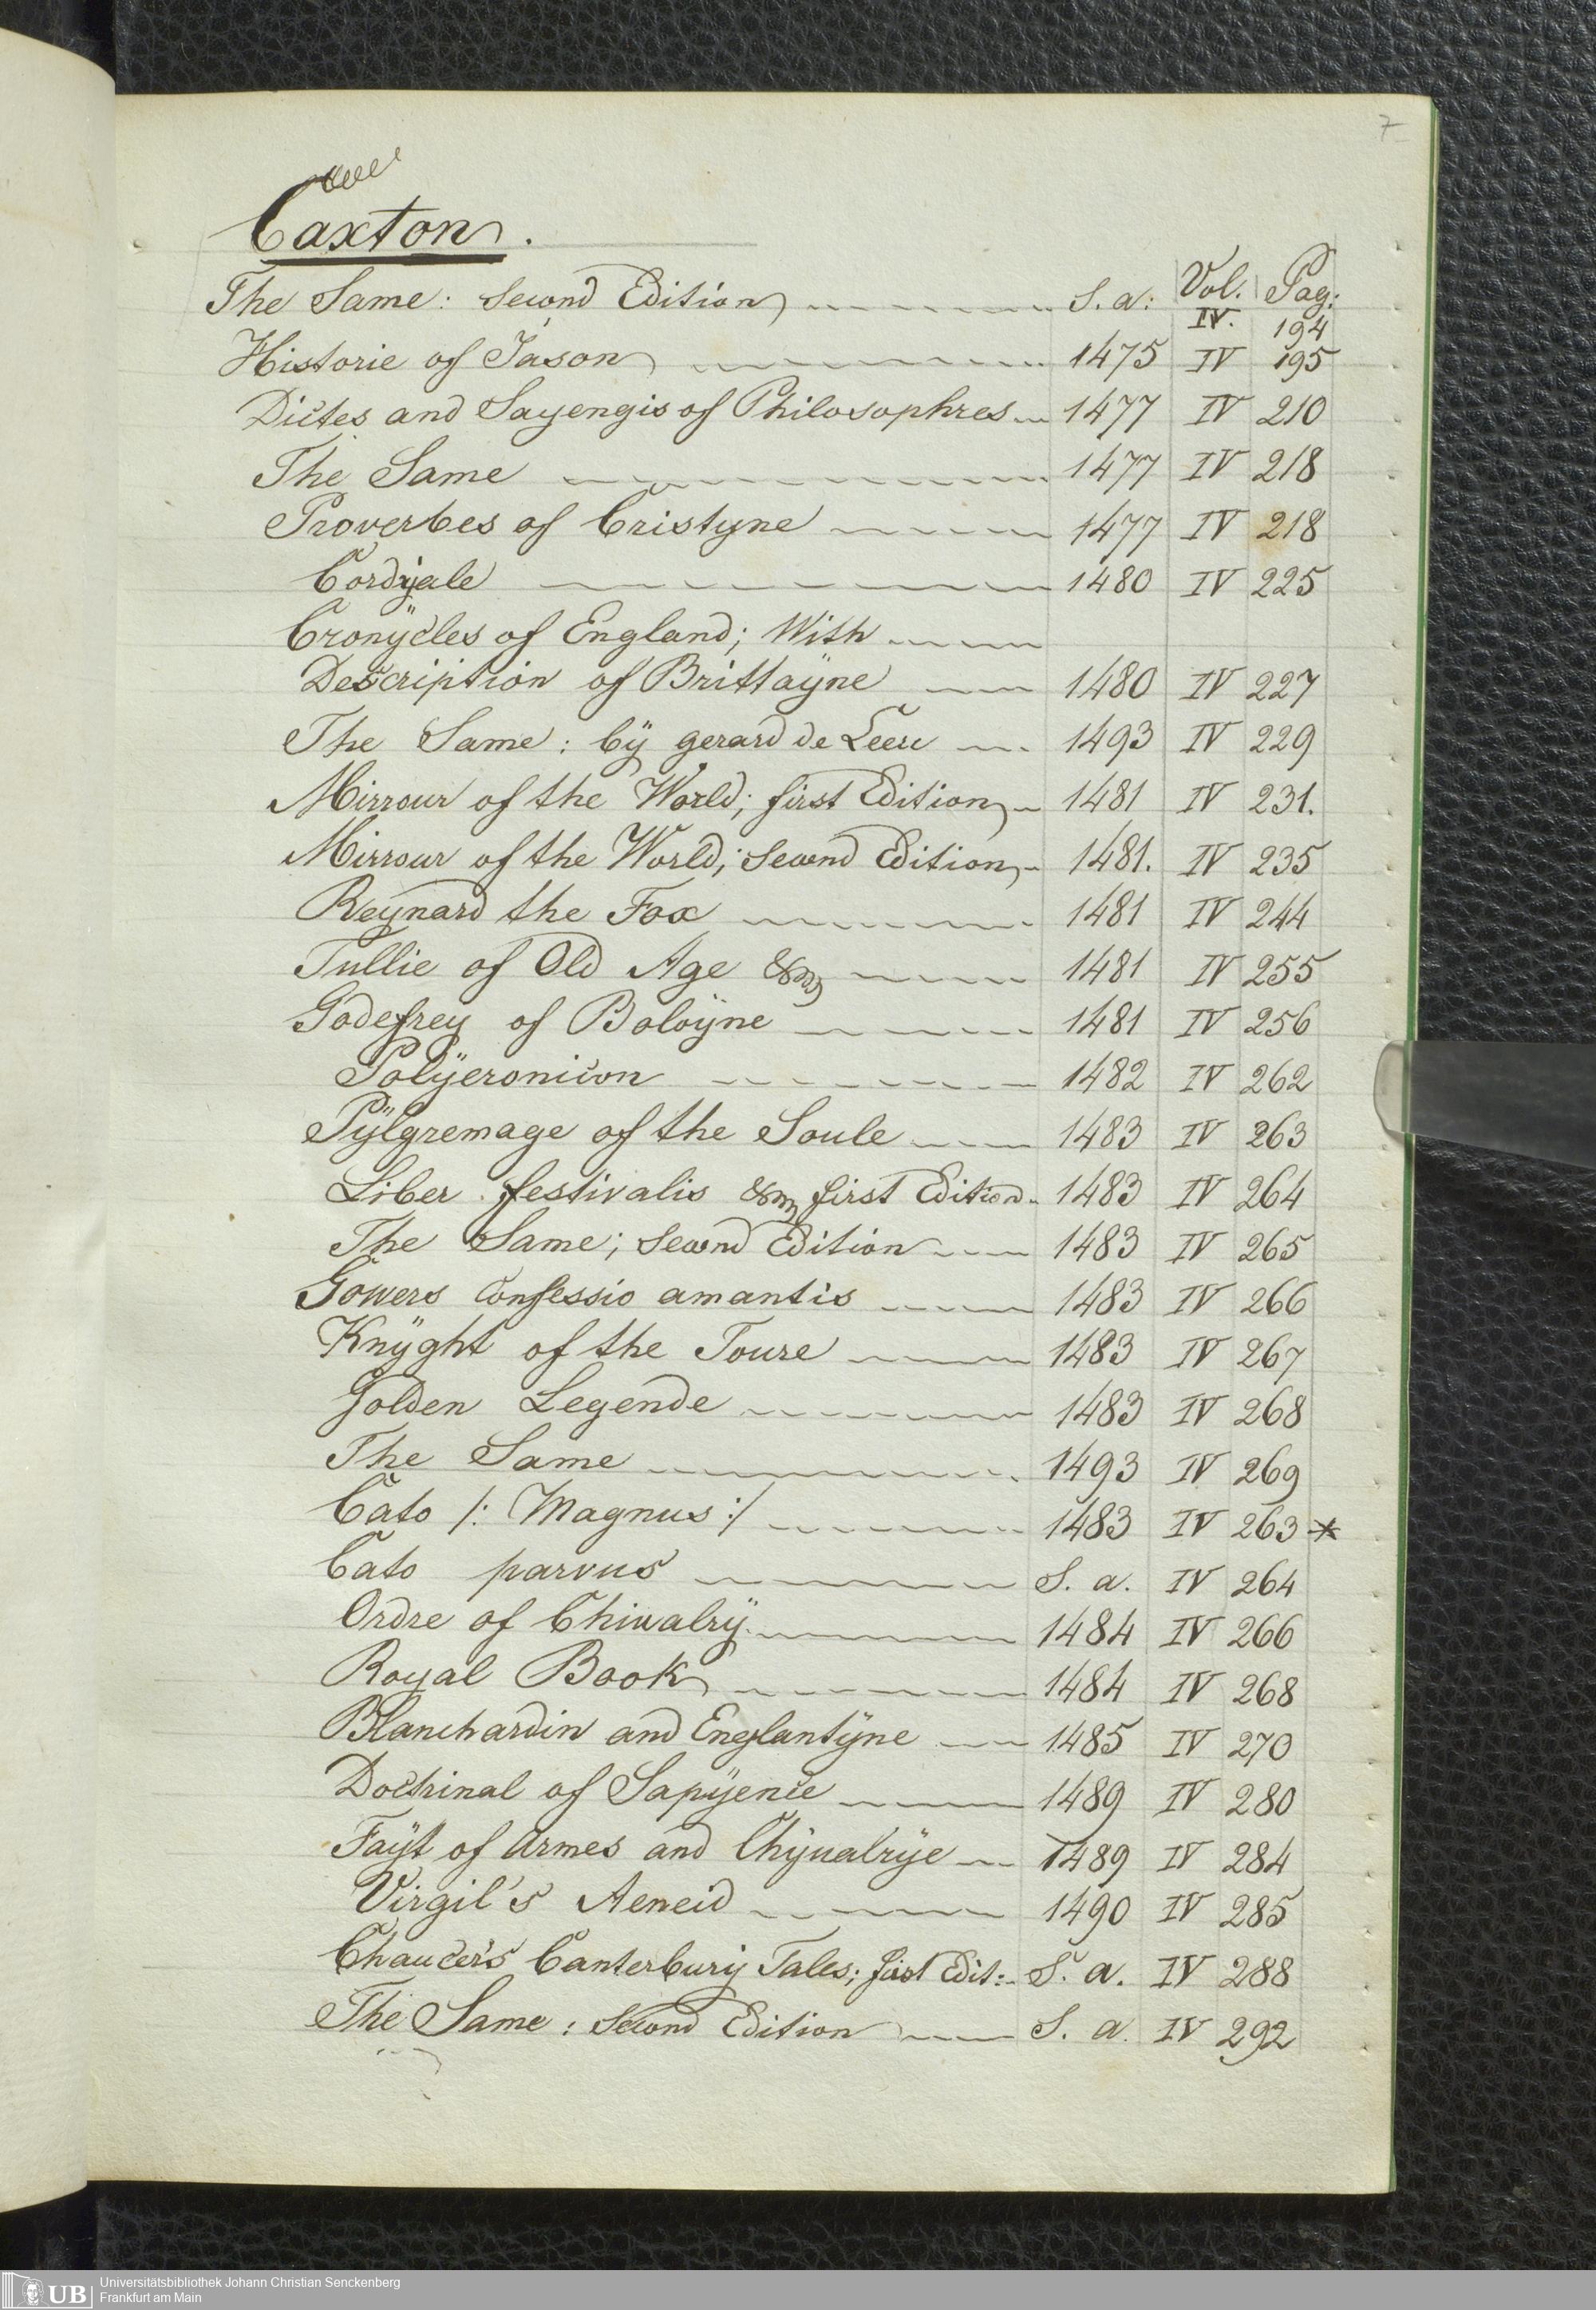 7
Caxton.
Vol. Pag:
The Same: Second Edition S. a: IV. 194
Historie of Jason 1475 IV 195
Dictes and Sayengis of Philosophres 1477 IV 210
The Same 1477 IV 218
Proverbes of Cristyne 1477 IV 218
Cordyale 1480 IV 225
Cronÿcles of England; With
Description of Brittaÿne 1480 IV 227
The Same: bÿ gerard de Leeu 1493 IV 229
Mirrour of the World; first Edition 1481 IV 231.
Mirrour of the World; Second Edition 1481. IV 235
Reynard the Fox 1481 IV 244
Tullie of Old Age &c 1481 IV 255
Godefrey of Boloÿne 1481 IV 256
Polÿeronicon 1482 IV 262
Pÿlgremage of the Soule 1483 IV 263
Liber festivalis &c first Edition 1483 IV 264
The Same; Second Edition 1483 IV 265
Gowers Confessio amantis 1483 IV 266
Knÿght of the Toure 1483 IV 267
Golden Legende 1483 IV 268
The Same 1493 IV 269
Cato /: Magnus :/ 1483 IV 263 *
Cato parvus S. a. IV 264
Ordre of Chiualrÿ 1484 IV 266
Royal Book 1484 IV 268
Blanchardin and Englantÿne 1485 IV 270
Doctrinal of Sapÿence 1489 IV 280
Faÿt of Armes and Chÿualrÿe 1489 IV 284
Virgil's Aeneid 1490 IV 285
Chaucer's Canterburij Tales; first Edit: S. a. IV 288
The Same: Second Edition S. a. IV 292
UB Universitätsbibliothek Johann Christian Senckenberg
Frankfurt am Main